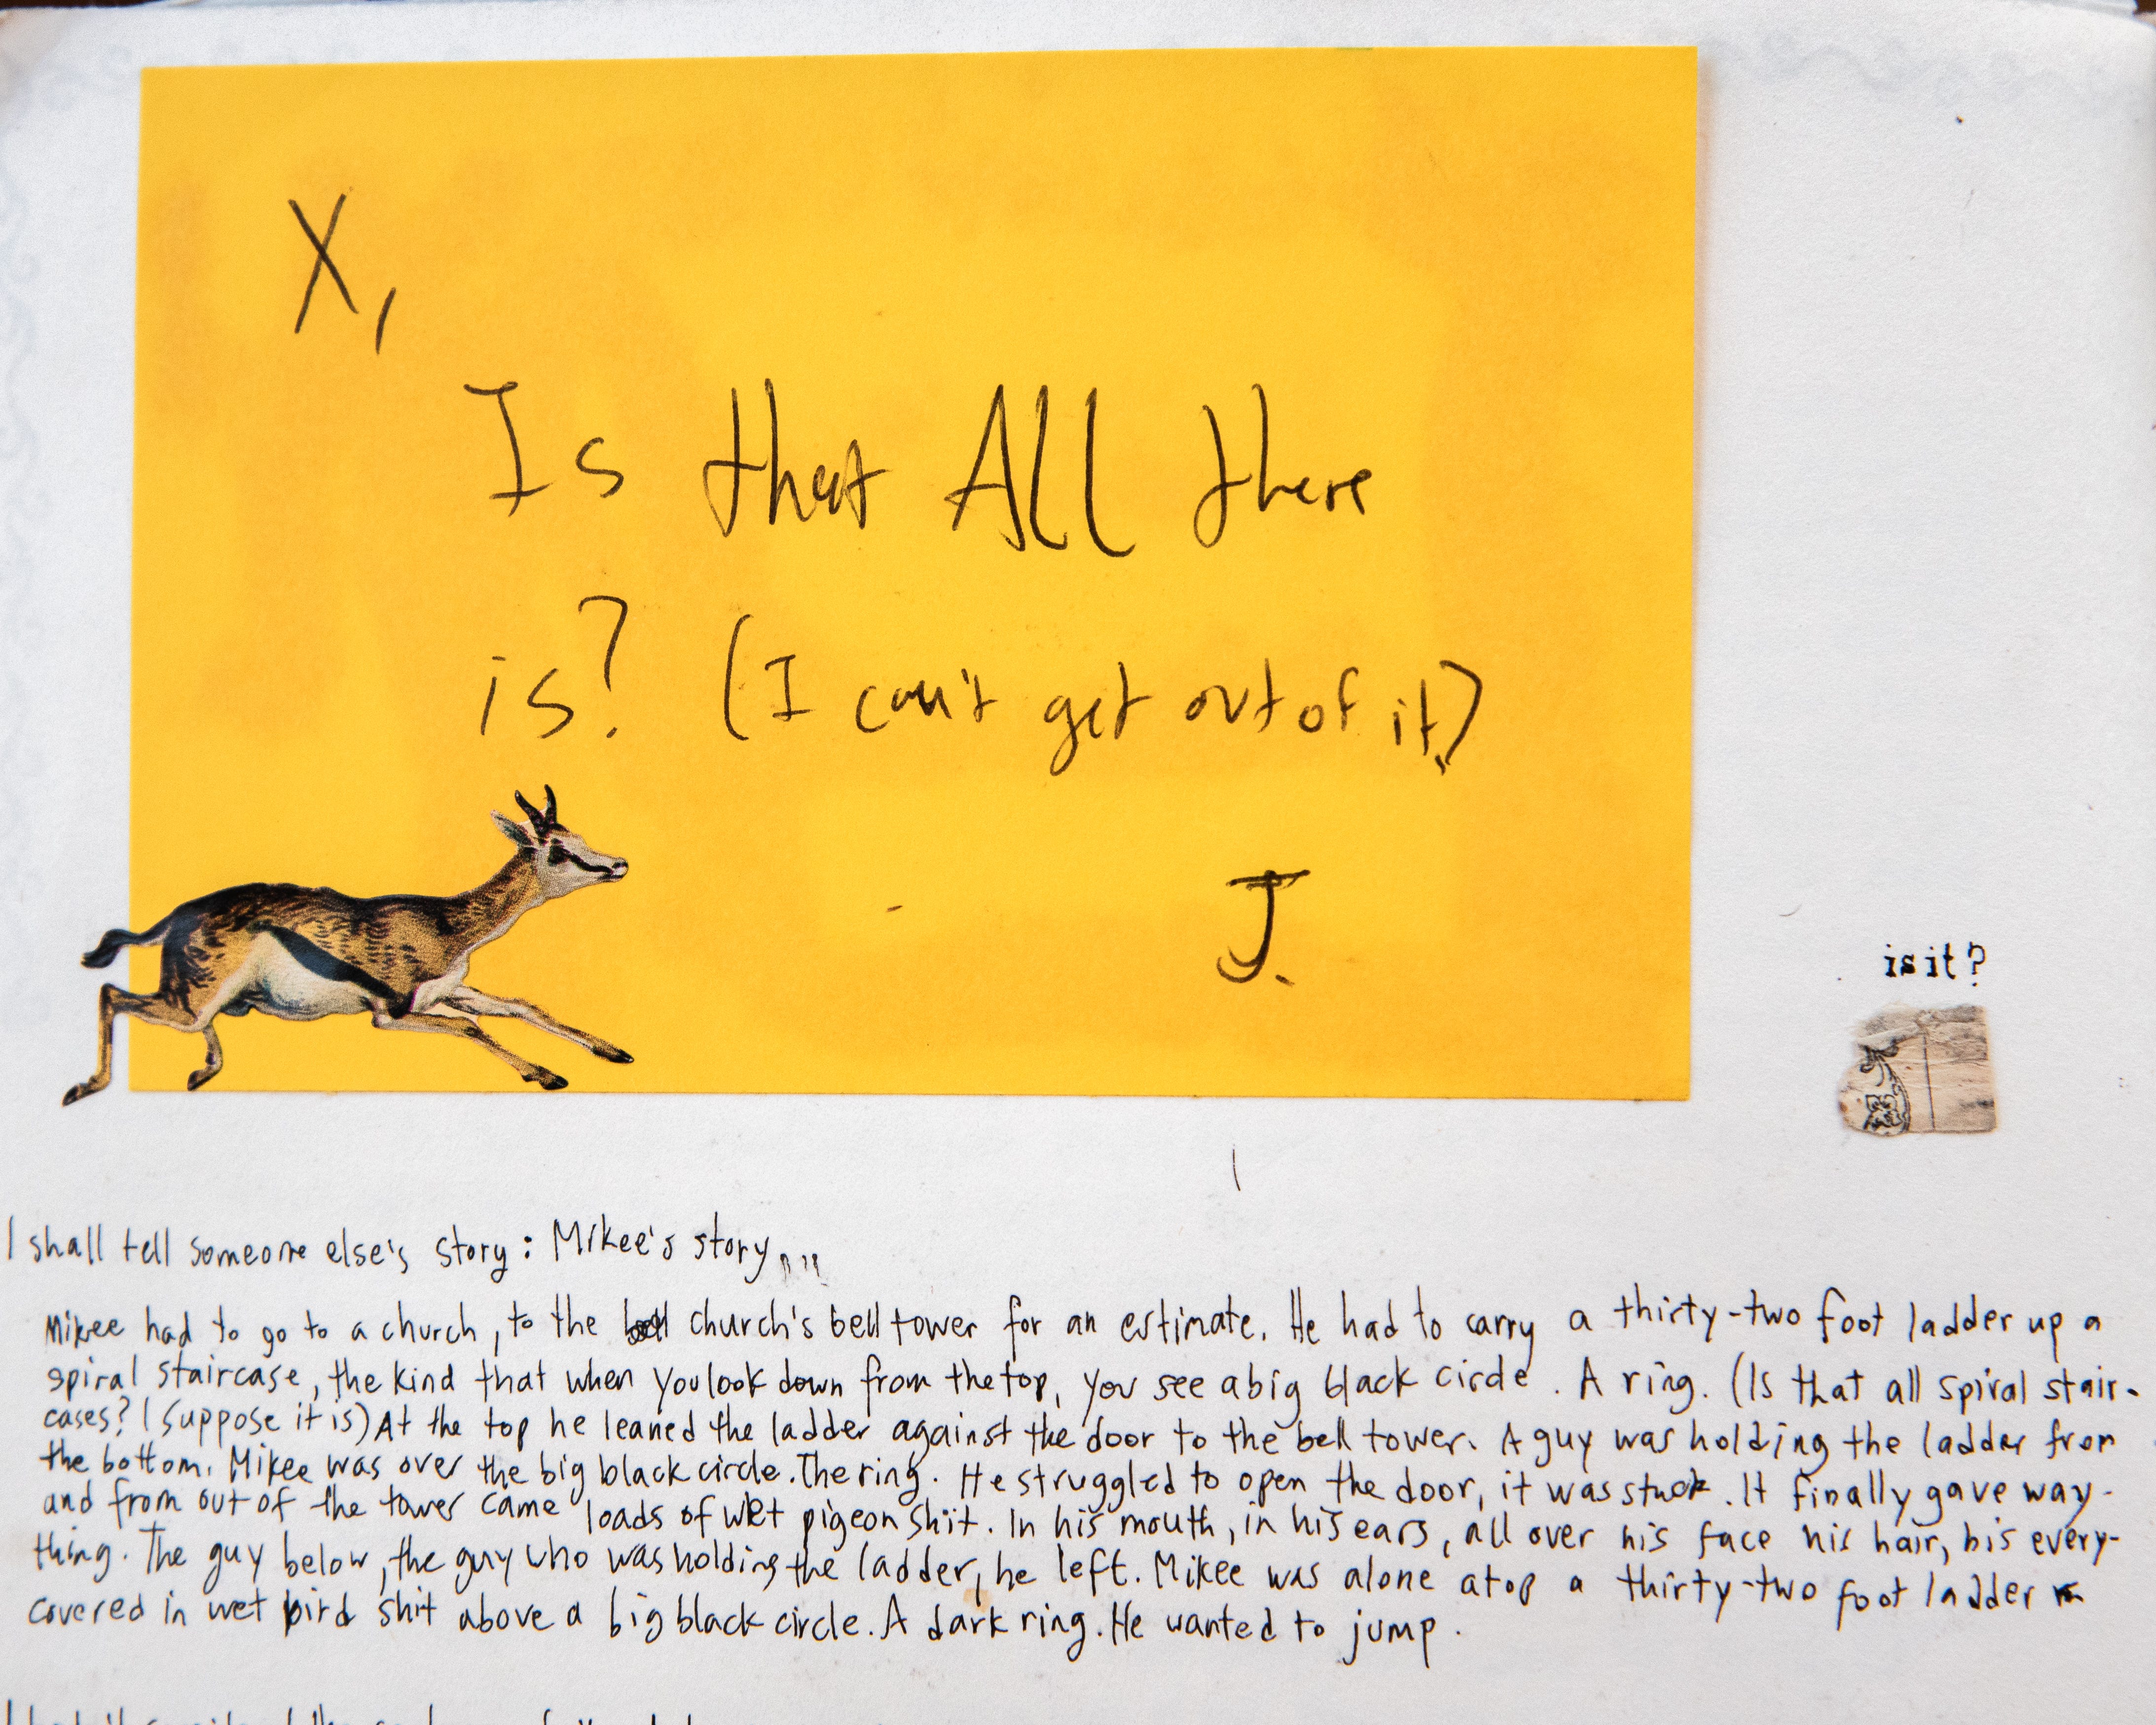 X,
Is that All there
is? (I can't get out of it.)
J.
is it?
I shall tell someone else's story: Mikee's story,,,,
Mikee had to go to a church, to the bell church's bell tower for an estimate. He had to carry a thirty-two foot ladder up a
spiral staircase, the kind that when you look down from the top, you see a big black circle. A ring. (Is that all spiral stair-
cases? I suppose it is) At the top he leaned the ladder against the door to the bell tower. A guy was holding the ladder from
the bottom. Mikee was over the big black circle. The ring. He struggled to open the door, it was stuck. It finally gave way-
and from out of the tower came loads of wet pigeon shit. In his mouth, in his ears, all over his face his hair, his every-
thing. The guy below, the guy who was holding the ladder, he left. Mikee was alone atop a thirty-two foot ladder
covered in wet bird shit above a big black circle. A dark ring. He wanted to jump.